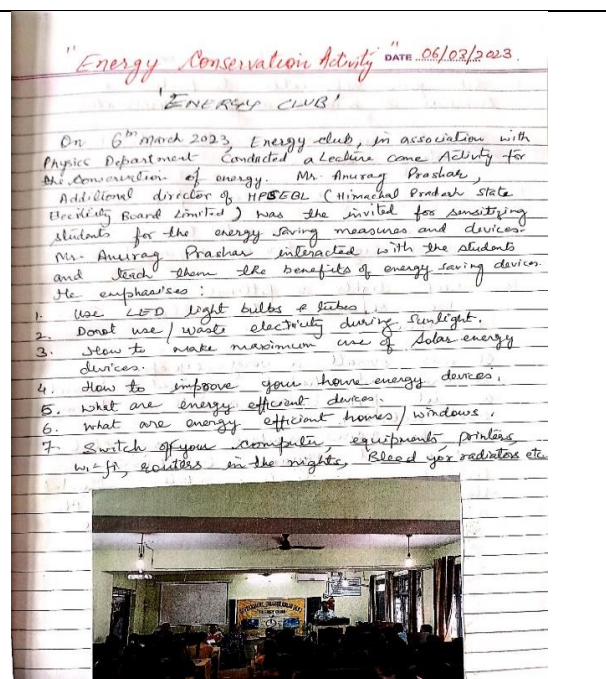 "Energy Conservation Activity" DATE 06/03/2023.
'ENERGY CLUB'
On 6th March 2023, Energy club, in association with
Physics Department Conducted a Lecture come Activity for
the conservation of energy. Mr. Anurag Prashar,
Additional director of HPSEBL (Himachal Pradesh State
Electricity Board Limited) was the invited for sensitizing
students for the energy saving measures and devices.
Mr. Anurag Prashar interacted with the students
and teach them the benefits of energy saving devices.
He emphasises :
1. Use LED light bulbs & tubes.
2. Donot use/waste electricity during Sunlight.
3. How to make maximum use of Solar energy
devices.
4. How to improve your home energy devices.
5. what are energy efficient devices.
6. what are energy efficient homes/windows.
7. Switch off your computer, equipments, printers,
wi-fi, routers in the nights, Bleed yor radiators etc